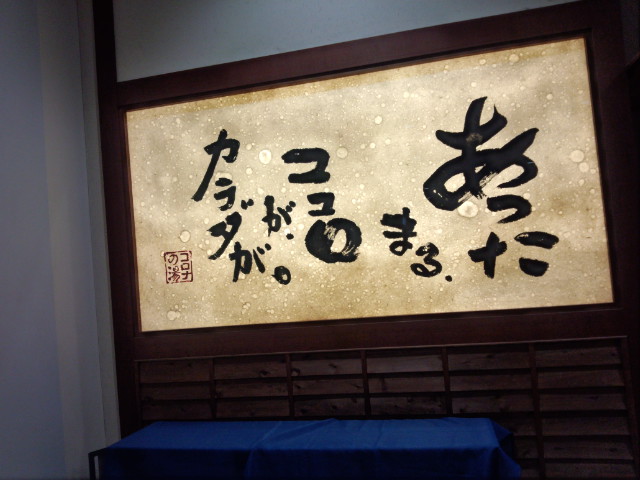 あったまる.
ココロが.
カラダが。
コロナの湯